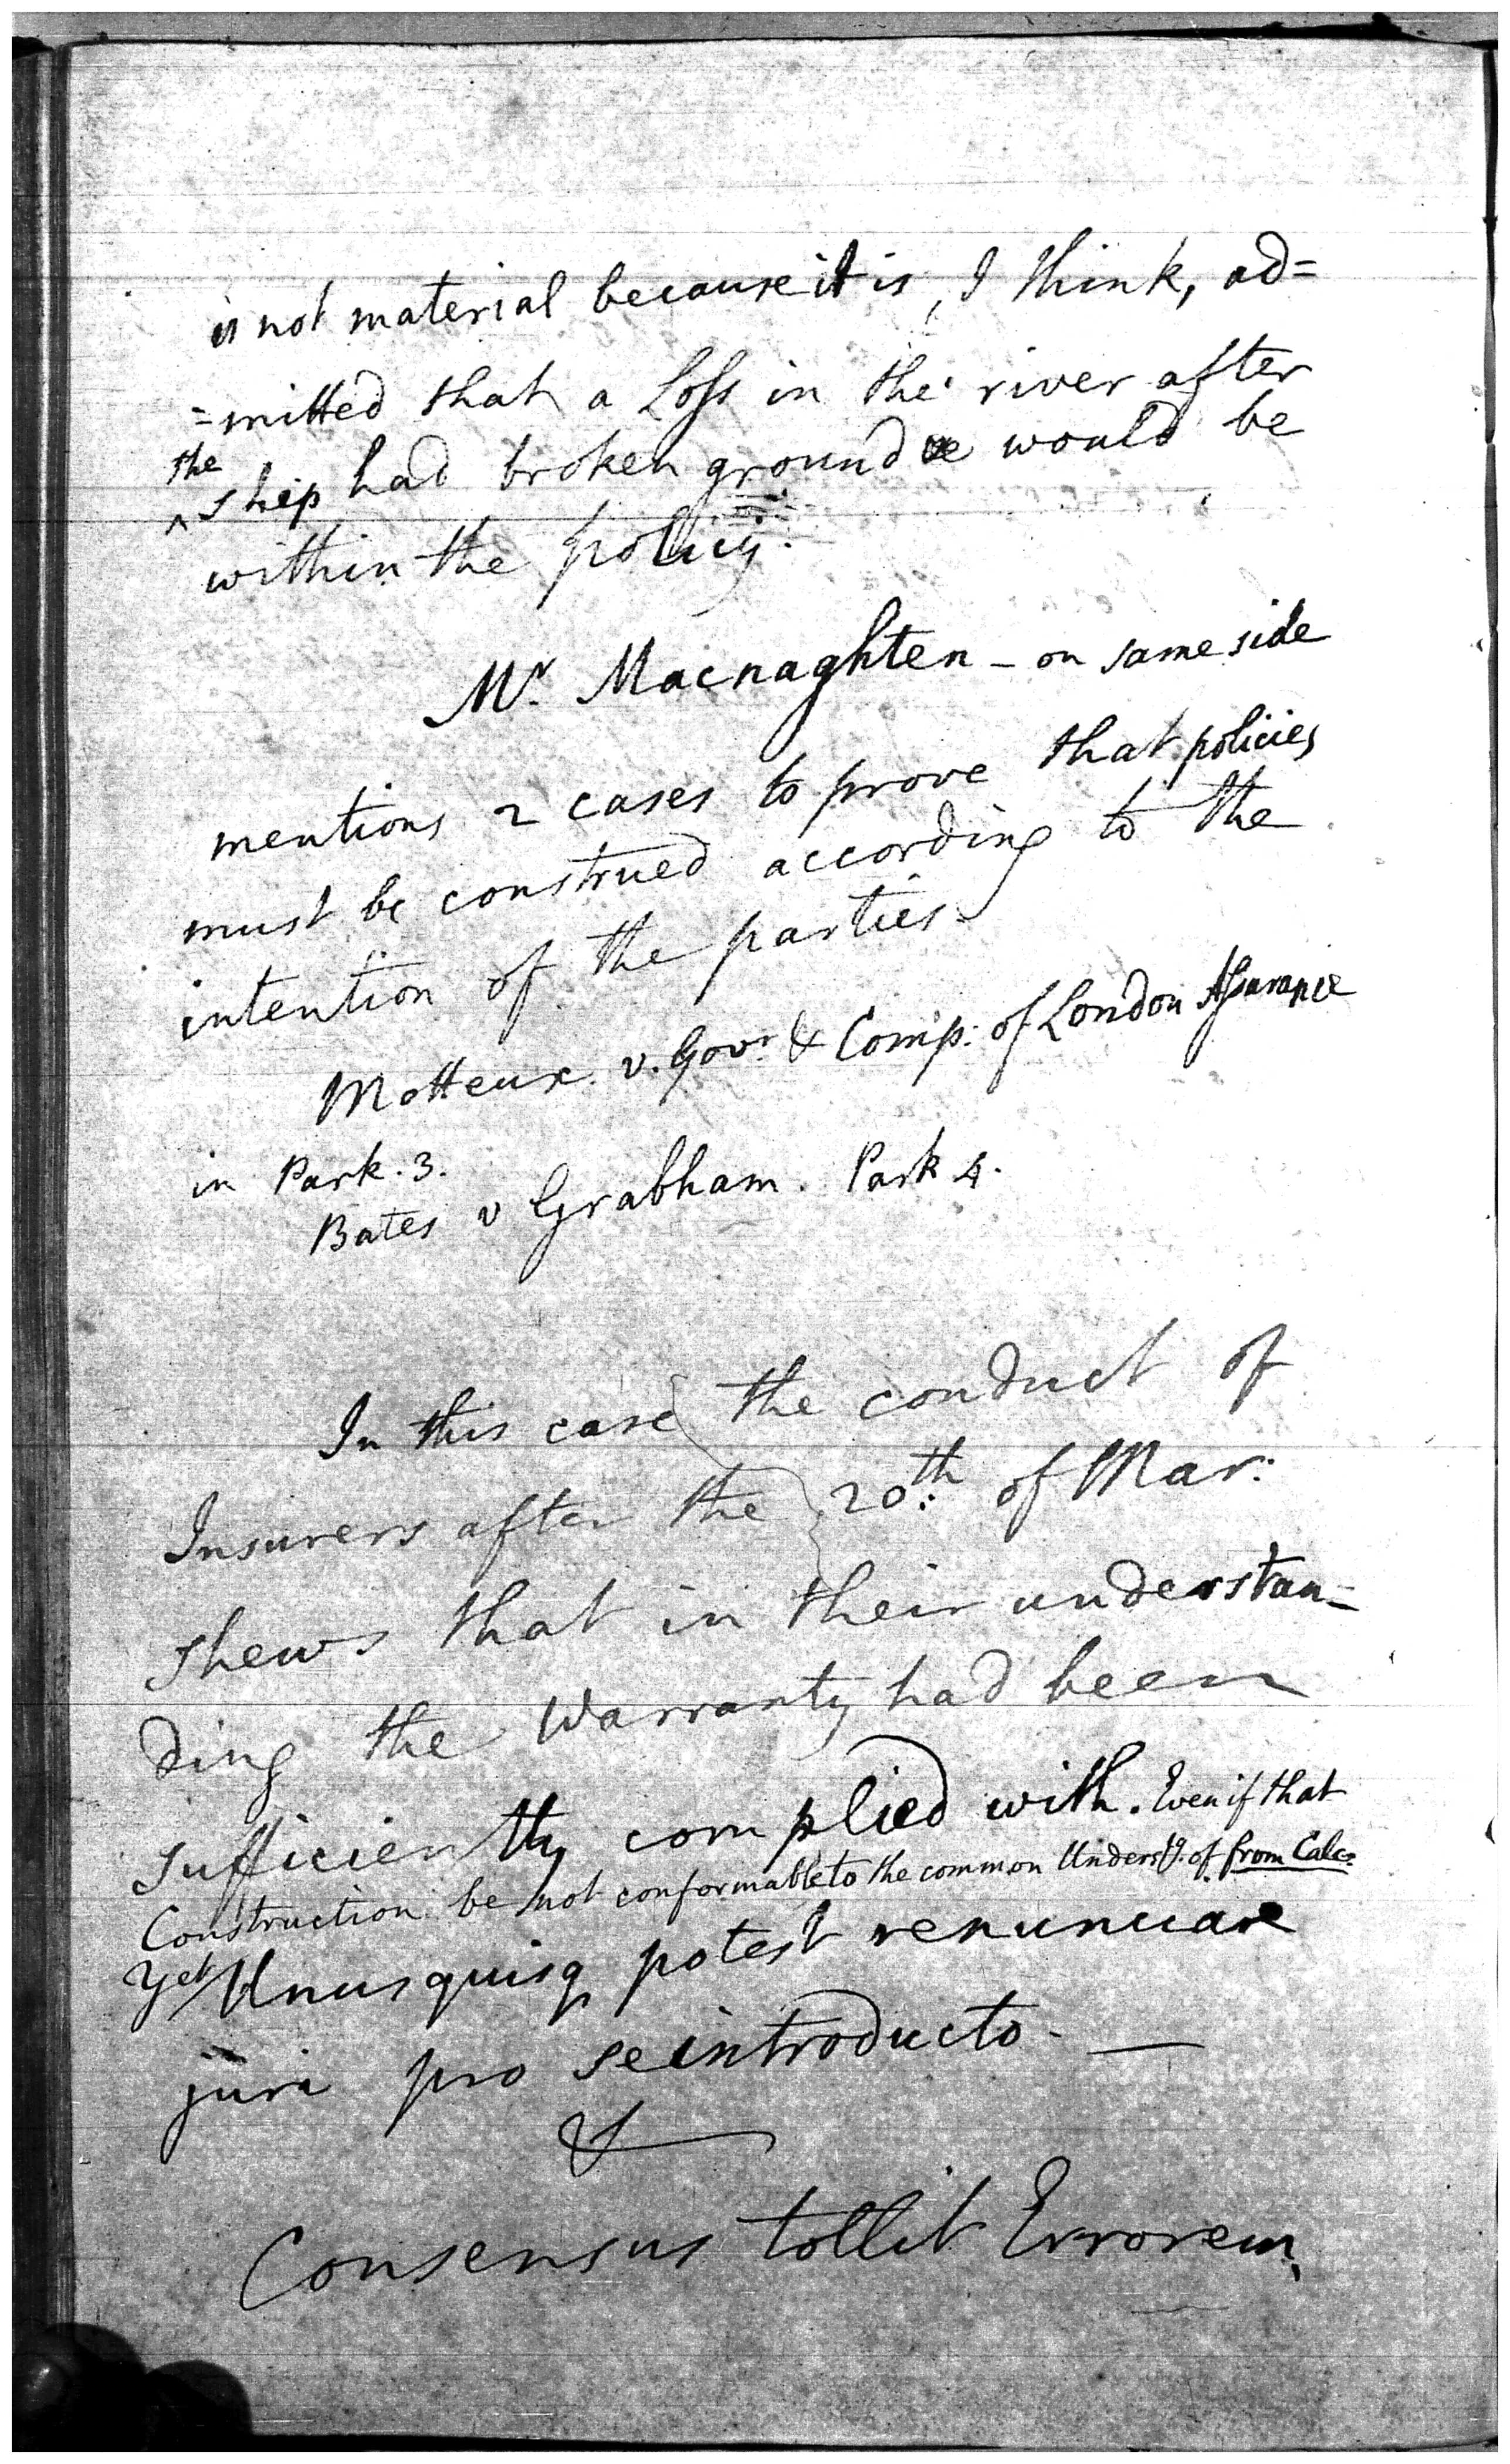 is not material because it is, I think, ad=
=mitted that a Loss in the river after
the
^ ship had broken ground would be
within the policy.
Mr. Macnaghten - on same side
mentions 2 cases to prove that policies
must be construed according to the
intention of the parties.
Motteux. v. Govr. & Comp: of London Assurance
in Park. 3.
Bates v Grabham. Park 4.
In this case the conduct of
Insurers after the 20th: of Mar:
shews that in their understan=
ding the Warranty had been
sufficiently complied with. Even if that
Construction be not conformable to the common Underst.g. of from Calc:
yet Unusquisq potest renunciare
juri pro se introducto. —
&
Consensus tollit Errorem.